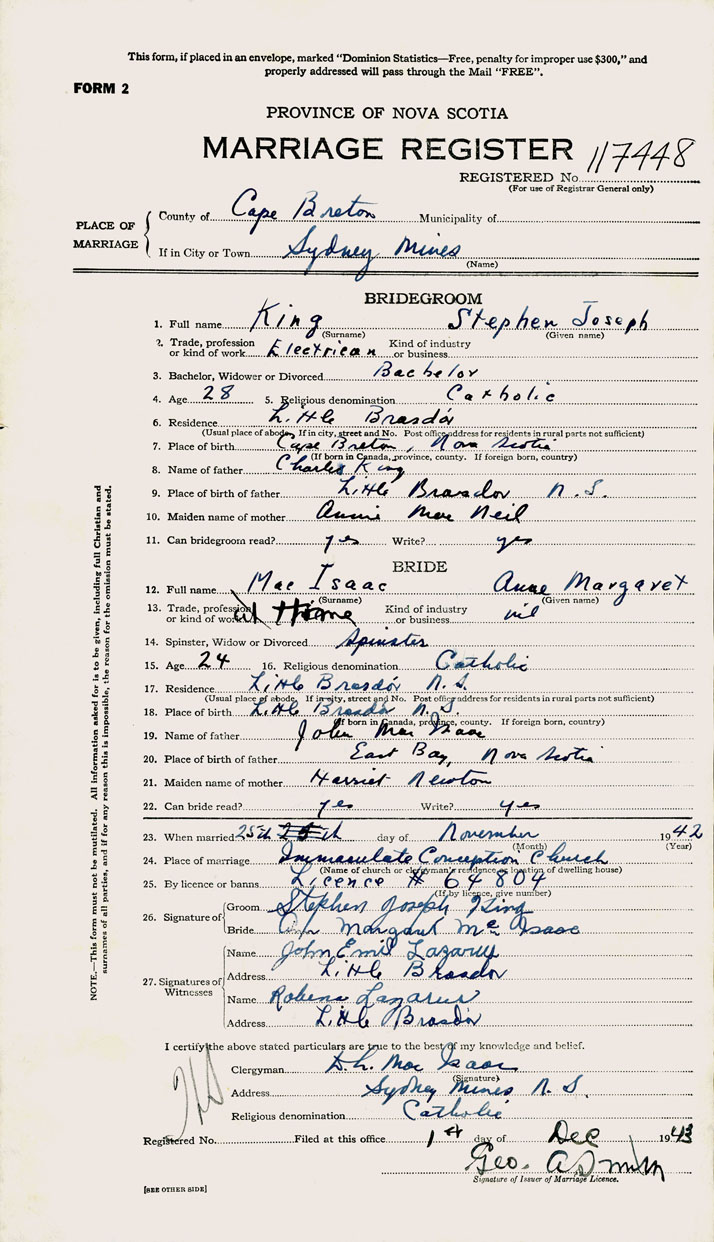 This form, if placed in an envelope, marked "Dominion Statistics—Free, penalty for improper use $300," and
properly addressed will pass through the Mail "FREE".
FORM 2
PROVINCE OF NOVA SCOTIA
MARRIAGE REGISTER
REGISTERED No. 117448
(For use of Registrar General only)
PLACE OF MARRIAGE
County of Cape Breton Municipality of
If in City or Town Sydney Mines
(Name)
BRIDEGROOM
1. Full name King Stephen Joseph
(Surname) (Given name)
2. Trade, profession or kind of work Electrican Kind of industry or business
3. Bachelor, Widower or Divorced Bachelor
4. Age 28 5. Religious denomination Catholic
6. Residence Little Brasdór
(Usual place of abode. If in city, street and No. Post office address for residents in rural parts not sufficient)
7. Place of birth Cape Breton, Nova Scotia
(If born in Canada, province, county. If foreign born, country)
8. Name of father Charles King
9. Place of birth of father Little Brasdor N.S.
10. Maiden name of mother Annie Mac Neil
11. Can bridegroom read? yes Write? yes
BRIDE
12. Full name Mac Isaac Anne Margaret
(Surname) (Given name)
13. Trade, profession or kind of work At Home Kind of industry or business nil
14. Spinster, Widow or Divorced Spinster
15. Age 24 16. Religious denomination Catholic
17. Residence Little Brasdór N.S.
(Usual place of abode. If in city, street and No. Post office address for residents in rural parts not sufficient)
18. Place of birth Little Brasdór N.S.
(If born in Canada, province, county. If foreign born, country)
19. Name of father John Mac Isaac
20. Place of birth of father East Bay, Nova Scotia
21. Maiden name of mother Harriet Newton
22. Can bride read? yes Write? yes
23. When married 25th 25th day of November 1942
(Month) (Year)
24. Place of marriage Immaculate Conception Church
(Name of church or clergyman's residence or location of dwelling house)
25. By licence or banns Licence # 64804
(If by licence, give number)
26. Signature of
Groom Stephen Joseph King
Bride Margaret McIsaac
27. Signatures of Witnesses
Name John Emil Lazarus
Address Little Brasdor
Name Robena Lazarus
Address Little Brasdór
I certify the above stated particulars are true to the best of my knowledge and belief.
Clergyman D.h. Mac Isaac
(Signature)
Address Sydney Mines N.S.
Religious denomination Catholic
Registered No. Filed at this office 1st day of Dec 1943
Geo. A Smith
Signature of Issuer of Marriage Licence.
[SEE OTHER SIDE]
NOTE.—This form must not be mutilated. All information asked for is to be given, including full Christian and
surnames of all parties, and if for any reason this is impossible, the reason for the omission must be stated.